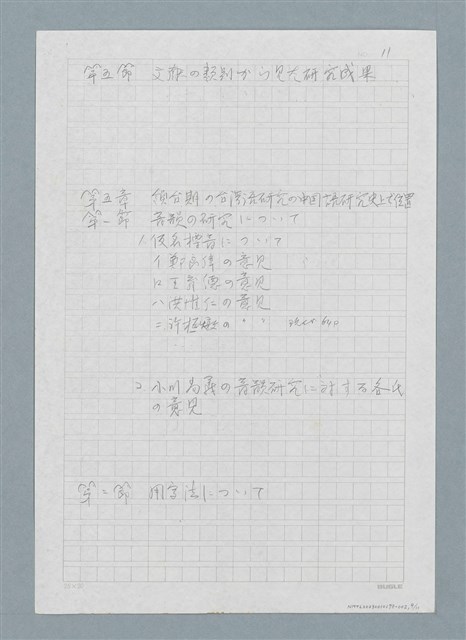 11
第五節 文献の類別から見た研究成果
第五章 領台期の台湾語研究の中国語研究史上の位置
第一節 音韻の研究について
1. 仮名標音について
イ 鄭良偉の意見
ロ 王育徳の意見
ハ 洪惟仁の意見
ニ 許極燉の 〃 〃
2 小川尚義の音韻研究に対する各氏
の意見
第二節 用字法について